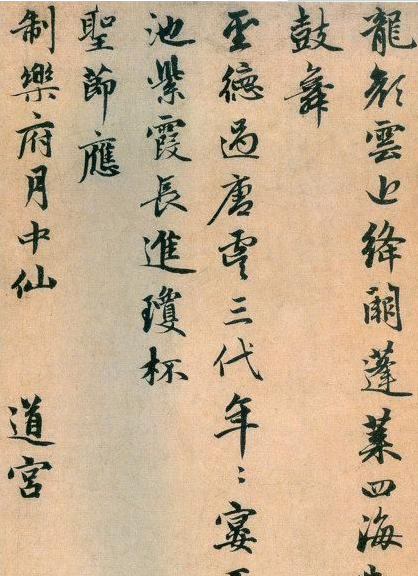 龍顏雲近絳闕蓬萊四海
鼓舞
聖德過唐虞三代年〻宴
池紫霞長進瓊杯
聖節應
制樂府月中仙 道宮